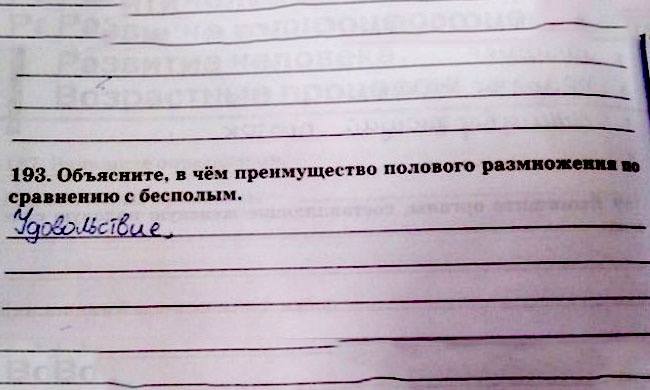 193. Объясните, в чём преимущество полового размножения по
сравнению с бесполым.
Удовольствие.